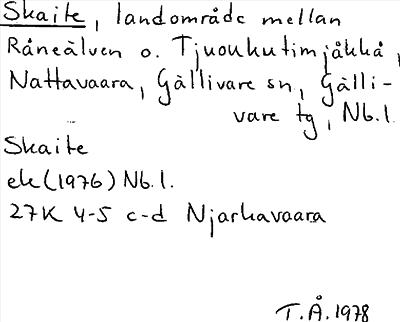 Skaite, landområde mellan
Råneälven o. Tjuoukutimjåkkå,
Nattavaara, Gällivare sn, Gälli-
vare tg, Nb.l.
Skaite
ek (1976) Nb.l.
27K 4-5 c-d Njarkavaara
T.Å. 1978